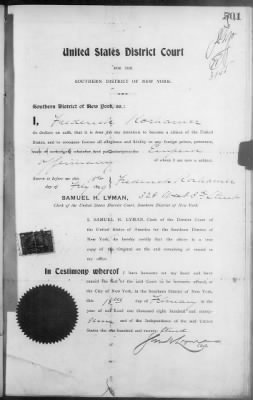 501
United States District Court
FOR THE
SOUTHERN DISTRICT OF NEW YORK.
Southern District of New York, ss.:
I, Frederick
do declare on oath, that it is bona fide my intention to become a citizen of the United
States, and to renounce forever all allegiance and fidelity to any foreign prince, potentate,
state or sovereignty whatever, and particularly to the Emperor
of Germany of whom I am now a subject.
Sworn in before me this
day of Frederick
SAMUEL H. LYMAN, 328 West Street
Clerk of the United States District Court, Southern District of New York.
I, SAMUEL H. LYMAN, Clerk of the District Court of
the United States of America for the Southern District of
New York, do hereby certify that the above is a true
copy of the Original on file and remaining of record in
my office.
In Testimony whereof I have hereunto set my hand and have
caused the Seal of the said Court to be hereunto affixed, at
the City of New York, in the Southern District of New York,
this day of February in the
year of our Lord one thousand eight hundred and ninety
and of the Independence of the said United
States the one hundred and twenty third
Clerk